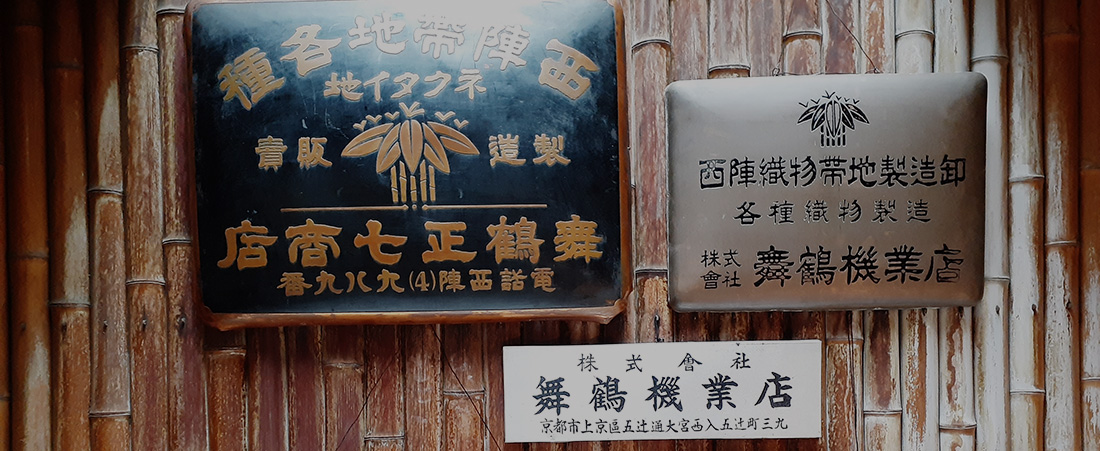 西陣帶地各種
ネクタイ地
製造 販賣
舞鶴正七商店
電話西陣(4)九八九番
西陣織物帯地製造卸
各種織物製造
株式會社 舞鶴機業店
株式會社
舞鶴機業店
京都市上京區五辻通大宮西入五辻町三九